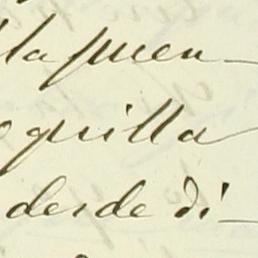 la puen-
quilla
desde di-